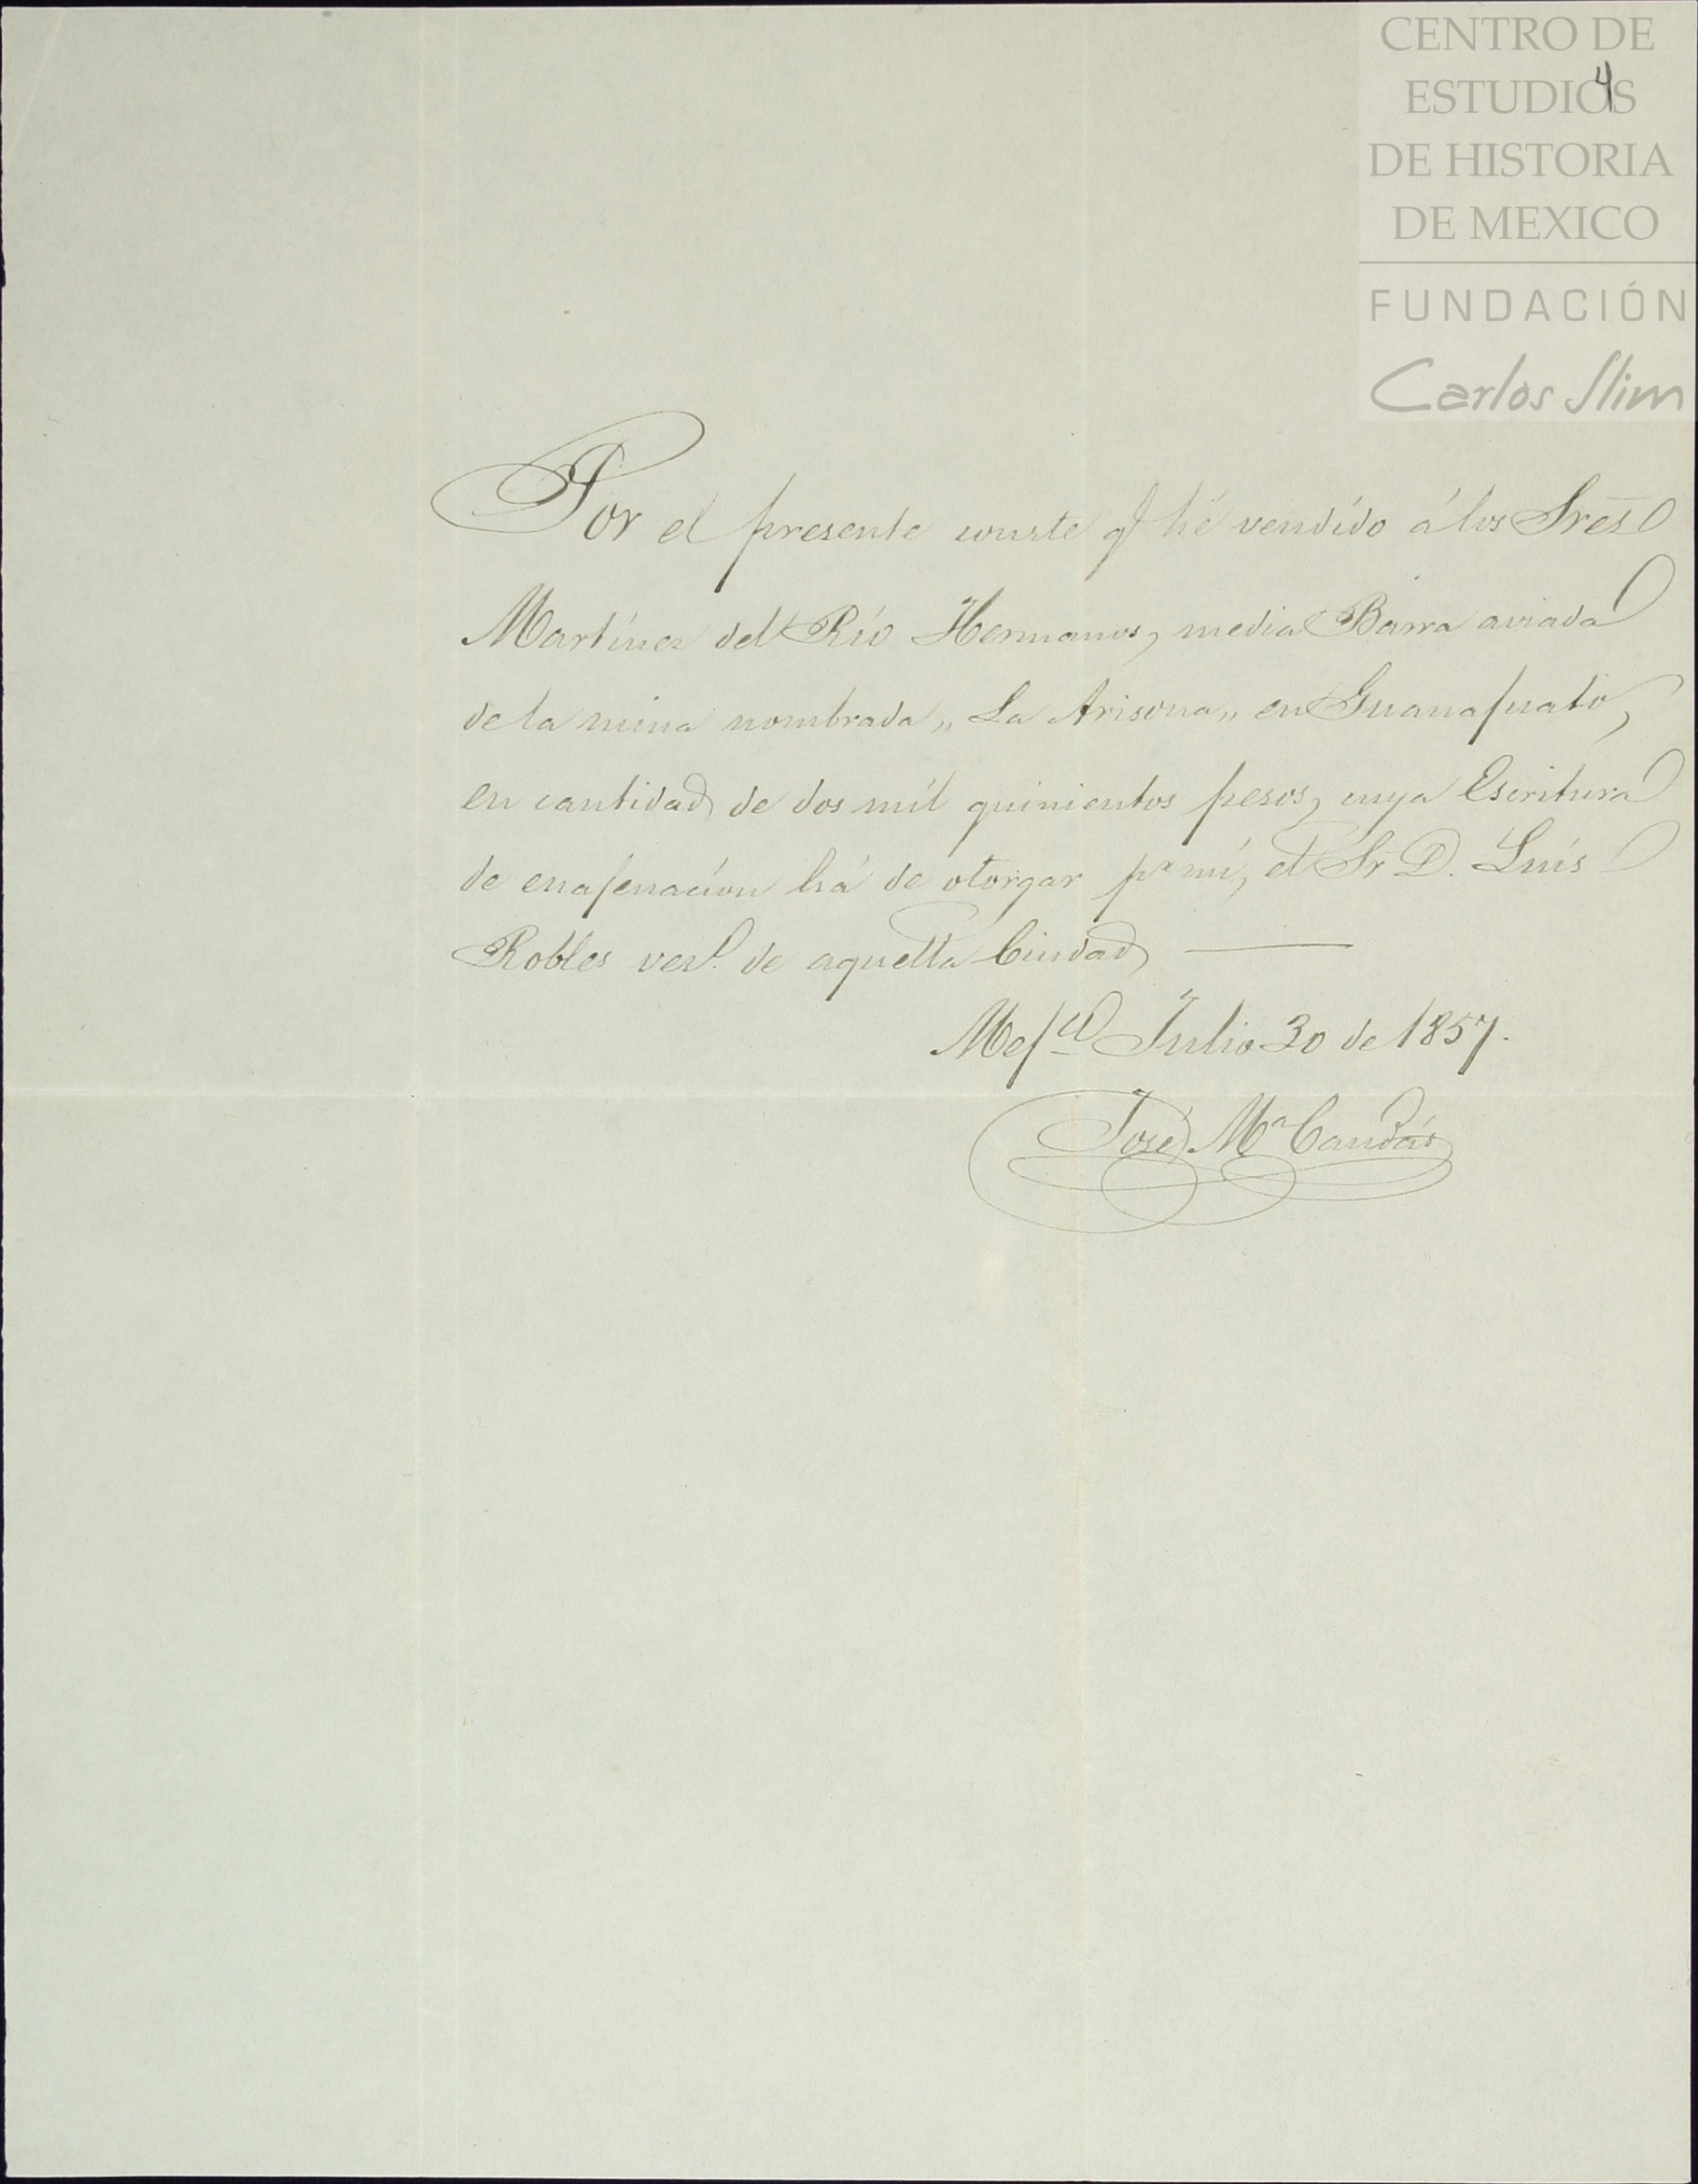 CENTRO DE
ESTUDIOS
DE HISTORIA
DE MEXICO
FUNDACIÓN
Carlos Slim
4
Por el presente conste q.^e hé vendído á los Sres
Martínez del Río Hermanos, media Barra aviada
de la mina nombrada „ La Arisona „ en Guanajuato,
en cantidad de dos mil quinientos pesos, cuya Escritura
de enajenacíon há de otorgar p.^r mí, el Sr D. Luís
Robles vez.^o de aquella Ciudad
Mej.^co Julio 30 de 1857.
José M.^a Candás